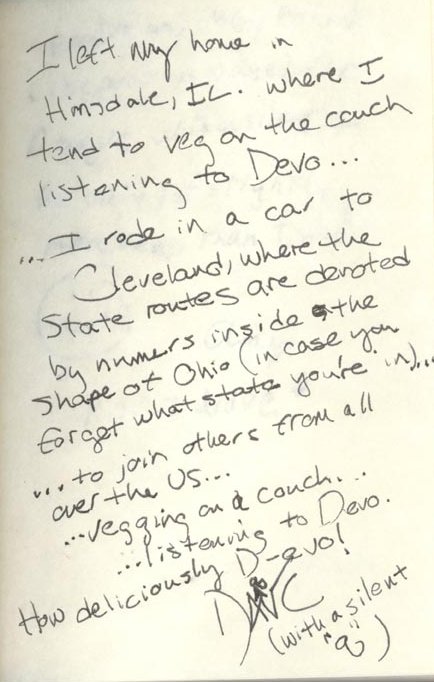 I left my home in
Hinsdale, IL. where I
tend to veg on the couch
listening to Devo...
...I rode in a car to
Cleveland, where the
State routes are denoted
by numers inside the
shape of Ohio (in case you
forget what state you're in)...
...to join others from all
over the US...
...vegging on a couch...
...listening to Devo.
How deliciously D-evo!
(with a silent
"g")